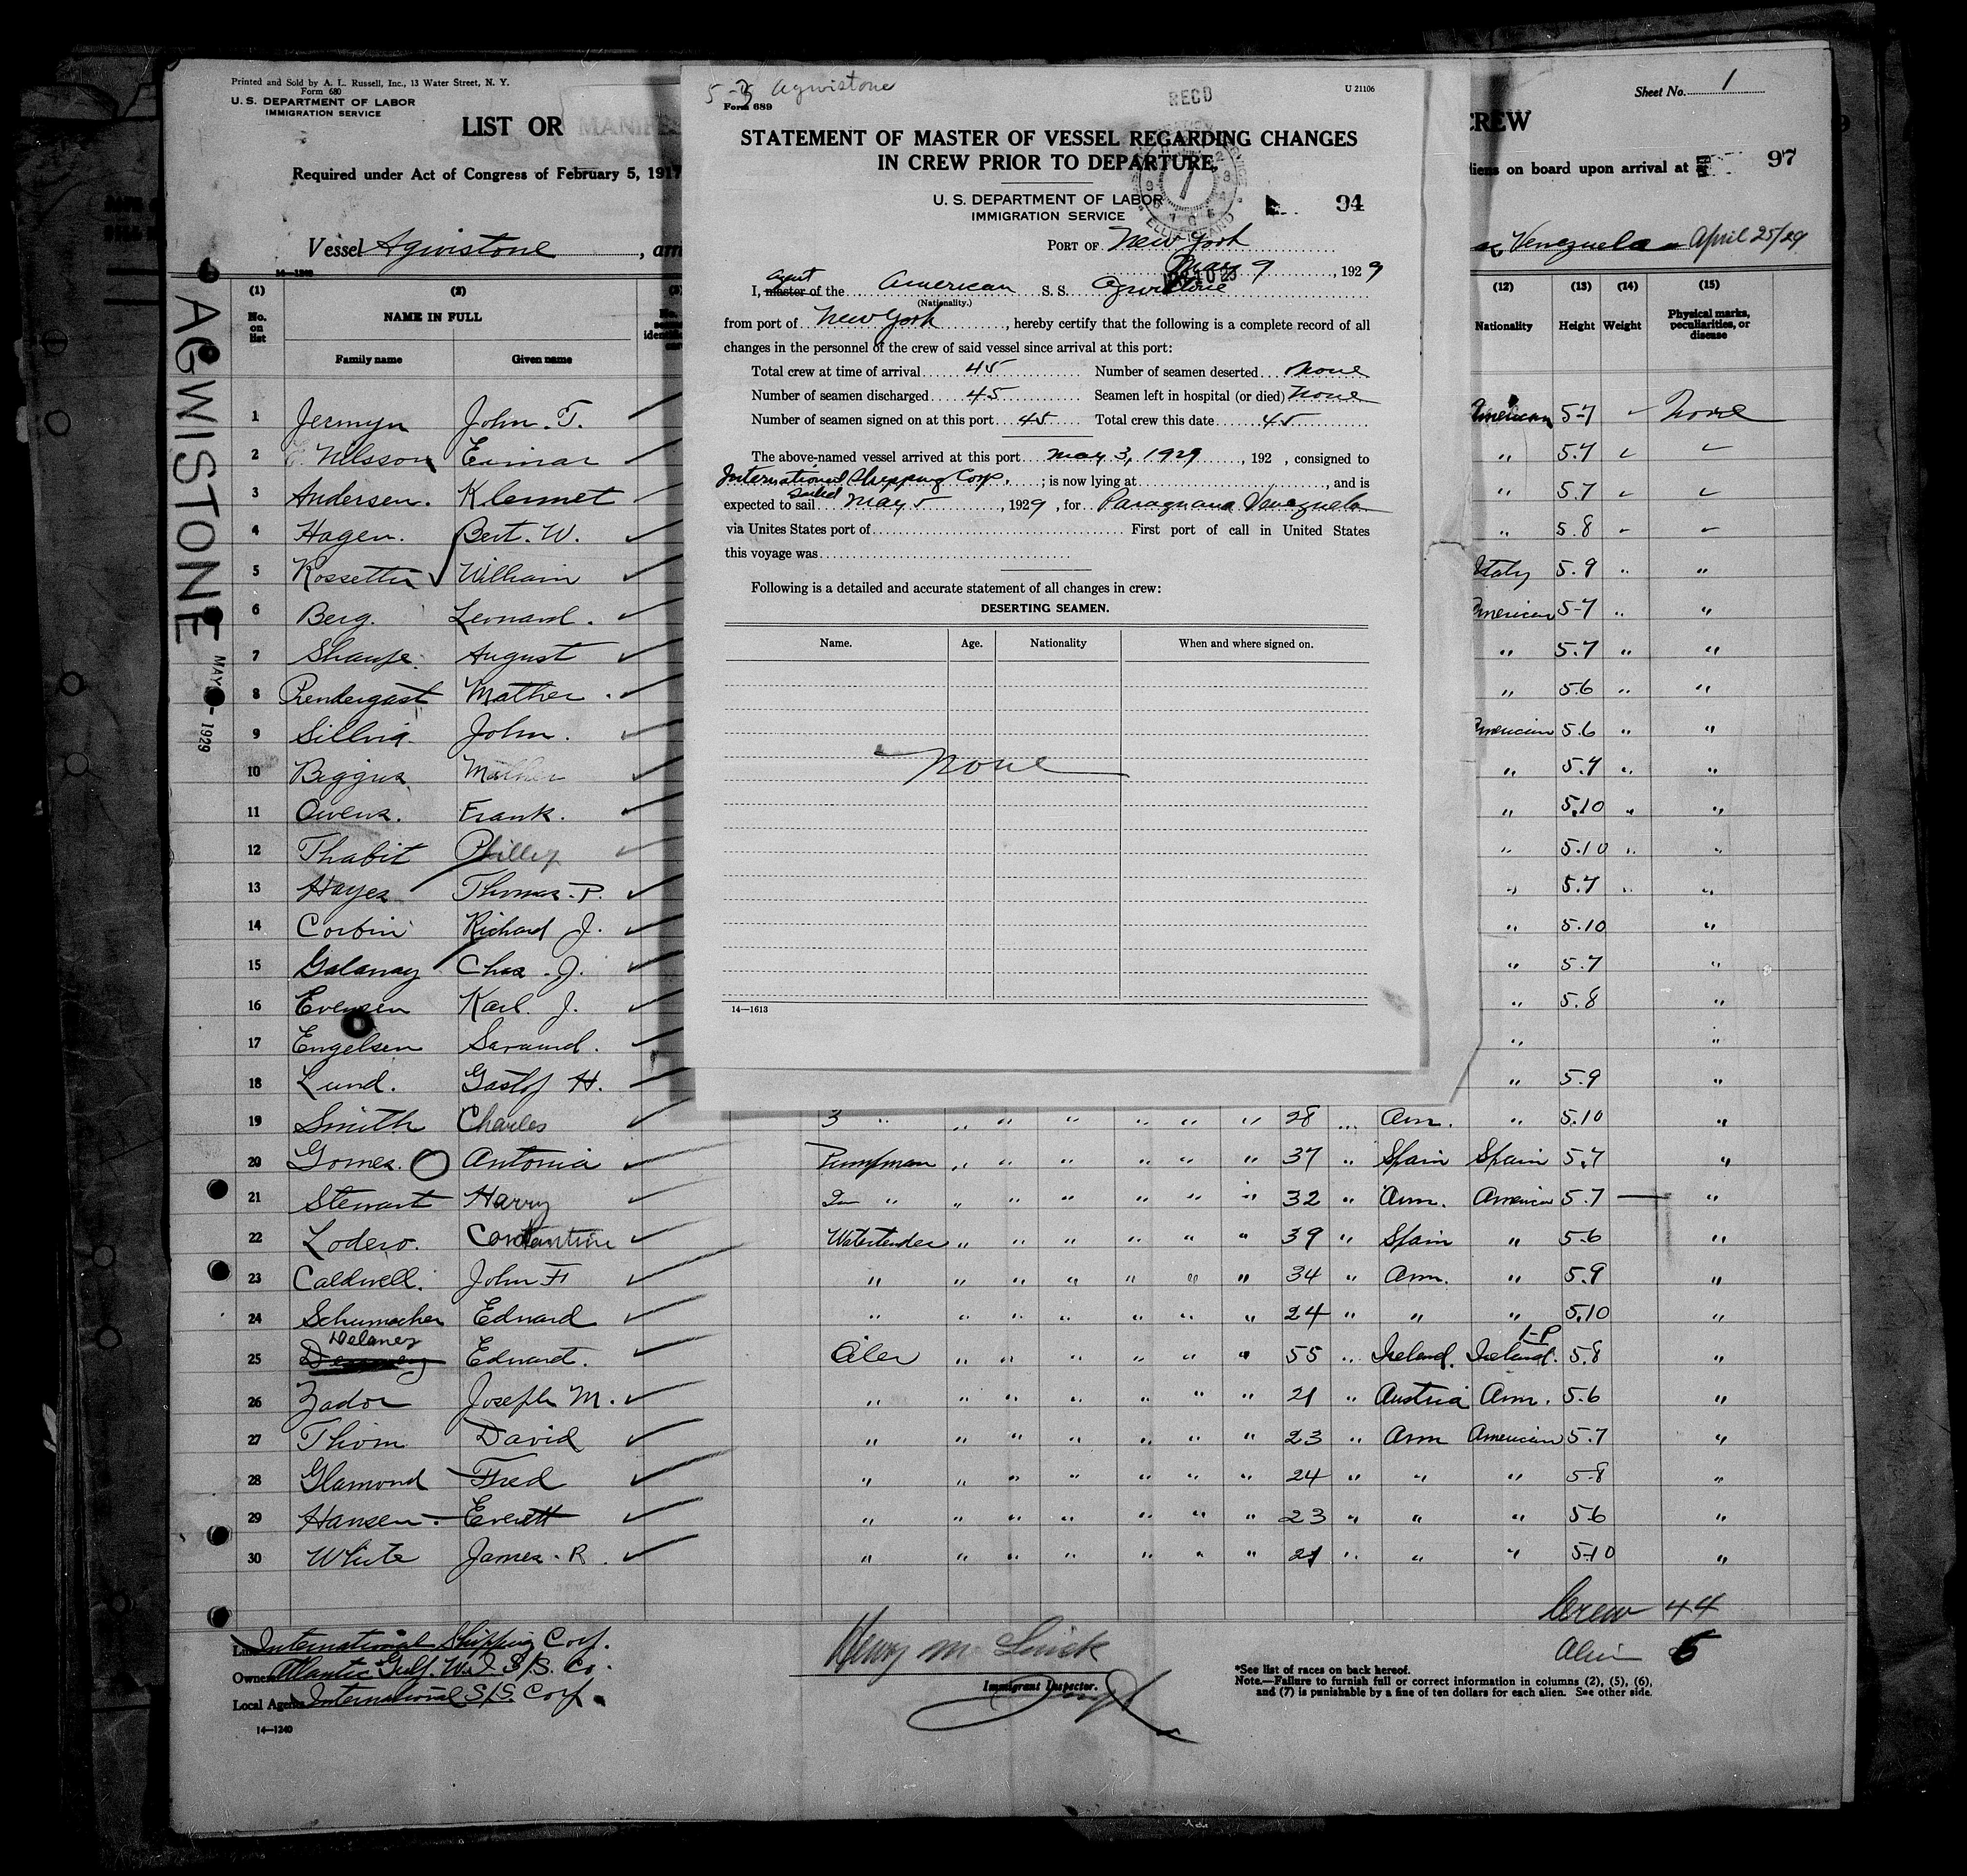 Printed and Sold by A. L. Russell, Inc., 13 Water Street, N. Y.
Form 680
U. S. DEPARTMENT OF LABOR
IMMIGRATION SERVICE
LIST OR MANIFES
Required under Act of Congress of February 5, 1917
Vessel Agwistone, am
14—1240
CREW
Sheet No. 1
tiens on board upon arrival at
97
Venezuela April 25/29
AGWISTONE
MAY 1929
5-3 Agwistone
Form 689
U 21106
RECD
STATEMENT OF MASTER OF VESSEL REGARDING CHANGES
IN CREW PRIOR TO DEPARTURE
U. S. DEPARTMENT OF LABOR
IMMIGRATION SERVICE
94
PORT OF New York
May 9, 1929
I, master agent of the American S. S. Agwistone
(Nationality.)
from port of New York, hereby certify that the following is a complete record of all
changes in the personnel of the crew of said vessel since arrival at this port:
Total crew at time of arrival 45 Number of seamen deserted none
Number of seamen discharged 45 Seamen left in hospital (or died) None
Number of seamen signed on at this port 45 Total crew this date 45
The above-named vessel arrived at this port May 3, 1929, 192 , consigned to
International Shipping Corp. ; is now lying at , and is
expected to sail sailed May 5, 1929, for Paraguana Venezuela
via Unites States port of First port of call in United States
this voyage was
Following is a detailed and accurate statement of all changes in crew:
DESERTING SEAMEN.
Name. Age. Nationality When and where signed on.
None
14—1613
(1) (2) (12) (13) (14) (15)
No. on list NAME IN FULL Nationality Height Weight Physical marks, peculiarities, or disease
Family name Given name
1 Jermyn John. T. American 5-7 None
2 Nilsson Einar " 5.7
3 Andersen. Klemmet " 5.7
4 Hagen. Bert. W. " 5.8
5 Rossetti William Italy 5.9 " "
6 Berg. Leonard. American 5-7 " "
7 Sharpe. August " 5.7 " "
8 Prendergast Mather " 5.6 " "
9 Sillvia. John. American 5.6 " "
10 Biggus " 5.7 " "
11 Owens. Frank. " 5.10 " "
12 Thabit Phillip " 5.10 " "
13 Hayes Thomas. P. " 5.7 " "
14 Corbin Richard J. " 5.10 "
15 Galavay Chas. J. " 5.7 "
16 Evensen Karl. J. " 5.8 "
17 Engelsen " "
18 Lund. H. " 5.9 "
19 Smith Charles 3 " " " " " " " 28 " Am. " 5.10 "
20 Gomes. Antonia Pumpman " " " " " " 37 " Spain Spain 5.7 "
21 Stewart Harry " " " " " " " 32 " Am. American 5.7 "
22 Lodero. Constantine Watertender " " " " " " 39 " Spain " 5.6 "
23 Caldwell. John F " " " " " " " 34 " Am. " 5.9 "
24 Schumacher Edward " " " " " " " 24 " " " 5.10 "
25 Delaney Edward. Oiler " " " " " " 55 " Ireland. Ireland. 5.8 "
26 Zador Joseph M. " " " " " " " 21 " Austria Am. 5.6 "
27 Thom David " " " " " " " 23 " Am American 5.7 "
28 Glamond Fred " " " " " " " 24 " " " 5.8 "
29 Hansen. Everett " " " " " " " 23 " " " 5.6 "
30 White James. R. " " " " " " " 21 " " " 5-10 "
Crew 44
Alien 6
Line International Shipping Corp.
Owners Atlantic Gulf. W. I. S/S. Co.
Local Agents International S/S. Corp.
14—1240
Immigrant Inspector.
*See list of races on back hereof.
Note.—Failure to furnish full or correct information in columns (2), (5), (6),
and (7) is punishable by a fine of ten dollars for each alien. See other side.